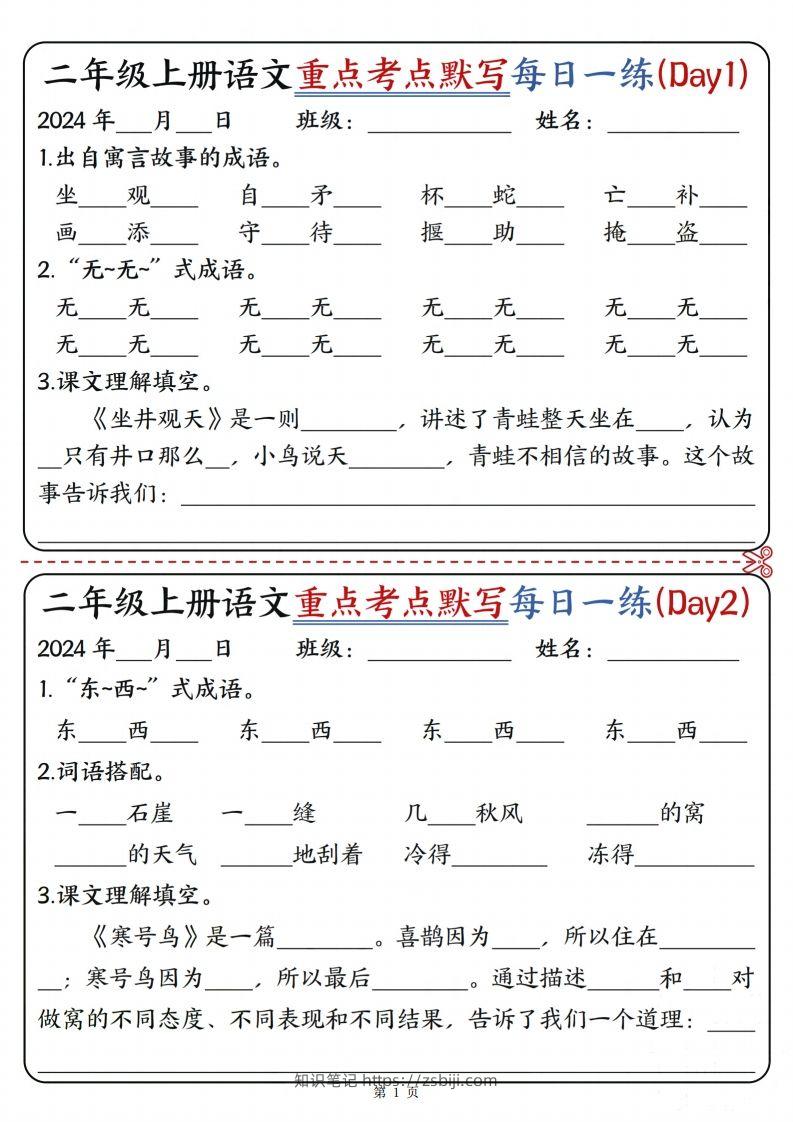 二年级上册语文重点考点默写每日一练(Day1)
2024年___月___日 班级：____________ 姓名：___________
1.出自寓言故事的成语。
坐____观____ 自____矛____ 杯____蛇____ 亡____补____
画____添____ 守____待____ 揠____助____ 掩____盗____
2.“无~无~”式成语。
无____无____ 无____无____ 无____无____ 无____无____
无____无____ 无____无____ 无____无____ 无____无____
3.课文理解填空。
《坐井观天》是一则________，讲述了青蛙整天坐在____，认为
__只有井口那么__，小鸟说天________，青蛙不相信的故事。这个故
事告诉我们：________________________________________________
____________________________________________________________
二年级上册语文重点考点默写每日一练(Day2)
2024年___月___日 班级：____________ 姓名：___________
1.“东~西~”式成语。
东____西____ 东____西____ 东____西____ 东____西____
2.词语搭配。
一____石崖 一____缝 几____秋风 ______的窝
______的天气 ______地刮着 冷得________ 冻得__________
3.课文理解填空。
《寒号鸟》是一篇________。喜鹊因为____，所以住在________
__；寒号鸟因为____，所以最后________。通过描述______和____对
做窝的不同态度、不同表现和不同结果，告诉了我们一个道理：____
____________________________________________________________
知识笔记 https://zsbiji.com
第 1 页